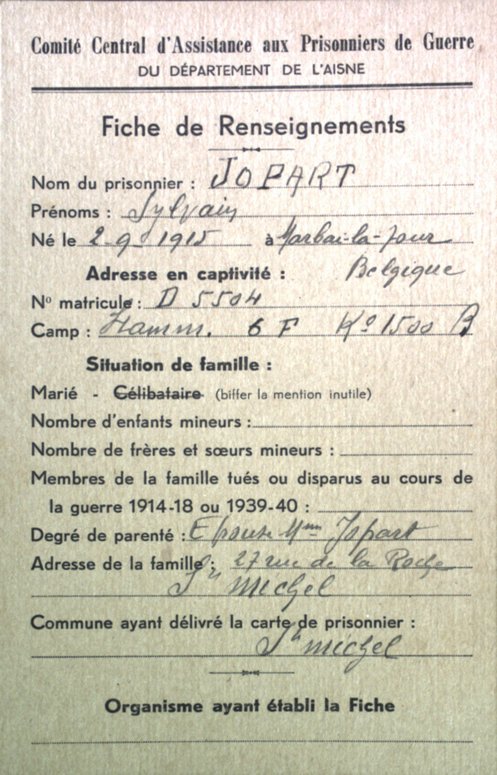 Comité Central d'Assistance aux Prisonniers de Guerre
DU DÉPARTEMENT DE L'AISNE
Fiche de Renseignements
Nom du prisonnier : JOPART
Prénoms : Sylvain
Né le 2-9-1915 à Marbai-la-Tour
Adresse en captivité : Belgique
No matricule : D 5504
Camp : Hamm. 6 F Ko 1500 B
Situation de famille :
Marié - Célibataire (biffer la mention inutile)
Nombre d'enfants mineurs :
Nombre de frères et sœurs mineurs :
Membres de la famille tués ou disparus au cours de
la guerre 1914-18 ou 1939-40 :
Degré de parenté : Epouse Mme Jopart
Adresse de la famille : 27 rue de la Roche
St Michel
Commune ayant délivré la carte de prisonnier :
St Michel
Organisme ayant établi la Fiche